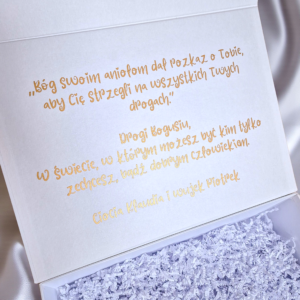 „Bóg swoim aniołom dał rozkaz o Tobie,
aby Cię strzegli na wszystkich Twych
drogach."
Drogi Bogusiu,
W świecie, w którym możesz być kim tylko
zechcesz, bądź dobrym człowiekiem.
Ciocia i wujek Piotrek